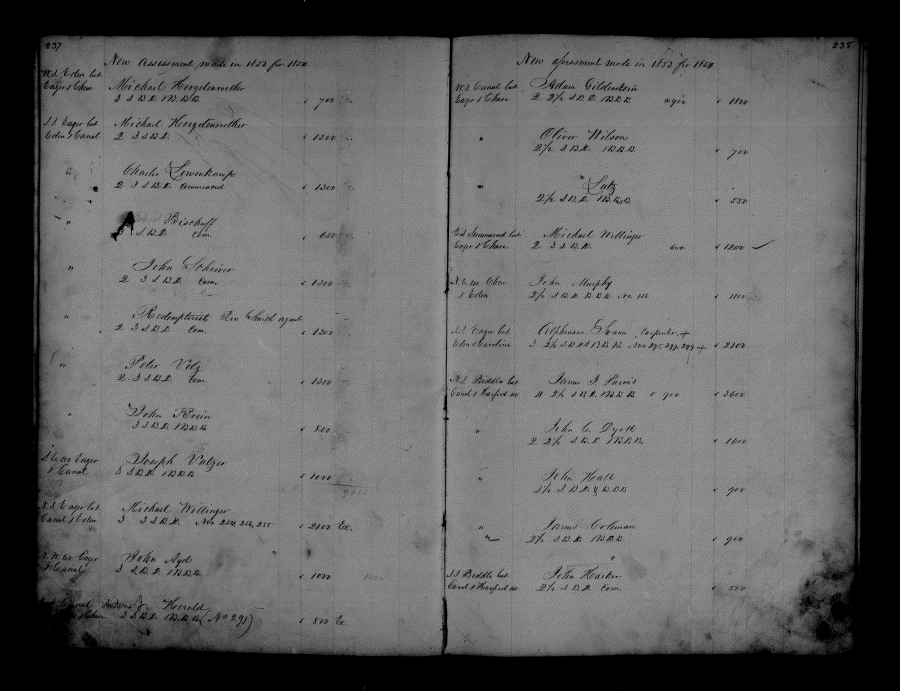 237
New assessment made in 1853 for 1854
W.S. Eden bet. Michael Hergetenrother
Eager & Chew 3 S.B.D. 1 B.B.B " 700
S.S. Eager bet. Michael Hergetenrother
Eden & Canal 2 3 S.B.D. " 1300
" Charles Lowenkamp
2 3 S.B.D. commenced " 1300
" Bischoff
3 S.B.D. Com. " 650
" John Schriver
2 3 S.B.D. Com. " 1300
" Redemptorists Rev. Smith agent
2 3 S.B.D. Com. " 1300
" Peter Volz
2 3 S.B.D. Com. " 1300
" John
3 S.B.D. 1 B.B.B " 800
S.E. cor Eager Joseph
& Canal 3 S.B.D. 1 B.B.B " 1000
N.S. Eager bet. Michael Willinger
Canal & Eden 3 3 S.B.D. Nos 254, 256, 255 " 2100 Ex.
N.W. cor Eager John Ayd
& Canal 3 S.B.D. 1 B.B.B " 1000
Canal Herold
3 S.B.D. 1 B.B.B (No 291) " 800 Ex.
238
New assessment made in 1853 for 1854
W.S. Canal bet. Adam Gilderstein
Eager & Chase 2 2½ S.B.D. 1 B.B.B a 900 " 1800
" Oliver Wilson
2½ S.B.D. 1 B.B.B " 700
" " Lutz
2½ S.B.D. 1 B.B.B " 550
E.S. Somerset bet. Michael Willinger
Eager & Chase 2 3 S.B.D. 600 " 1200 ✓
N.E. cor Chew John Murphy
& Eden 2½ S.B.D. B.B.B No. 116 " 1100
S.S. Eager bet. Alphonsus Swann Carpenter +
Eden & Caroline 3 2½ S.B.D.s 1 B.B.B. Nos 295, 297, 299 + " 2100
N.S. Biddle bet. James J.
Canal & Harford av 4 2½ S.B.D. 1 B.B.B @ 900 " 3600
" John C. Dyott
2 2½ S.B.D. 1 B.B.B. " 1600
" John Hall
2½ S.B.D. & B.B.B " 900
" James Coleman
" 2½ S.B.D. 1 B.B. " 900
S.S. Biddle bet. John Harker
Canal & Harford av. 2½ S.B.D. Com. " 500